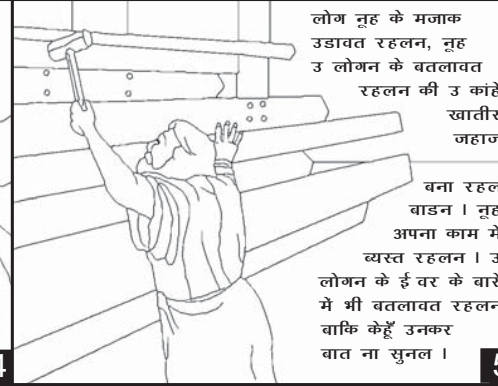 लोग नूह के मजाक
उडावत रहलन, नूह
उ लोगन के बतलावत
रहलन की उ कांहे
खातीर
जहाज
बना रहल
बाडन । नूह
अपना काम में
ब्यस्त रहलन । उ
लोगन के ई वर के बारे
में भी बतलावत रहलन
बाकि केहूँ उनकर
बात ना सुनल ।
4
5